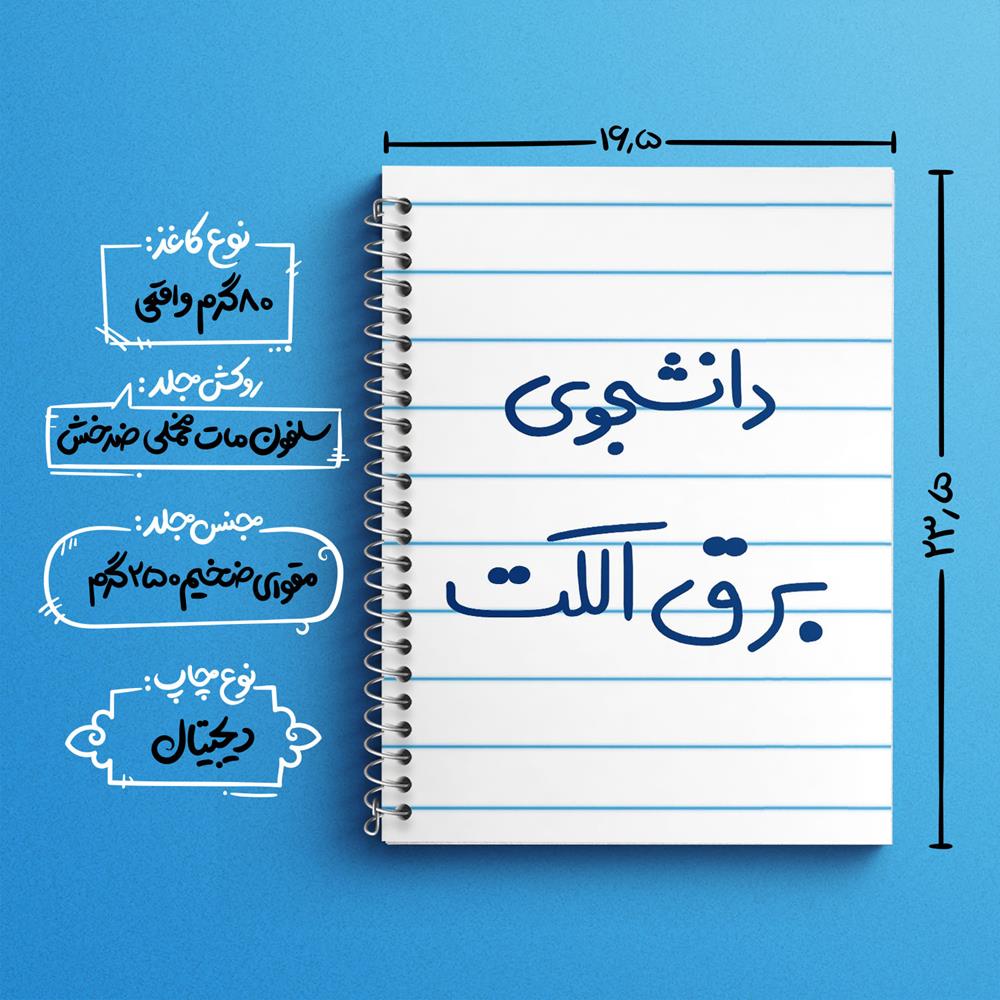 ۱۶٫۵
نوع کاغذ:
۸۰ گرم واقعی
روکش جلد:
سلفون مات مخملی ضدخش
جنس جلد:
مقوای ضخیم ۲۵۰ گرم
نوع چاپ:
دیجیتال
دانشجوی
برق الکت
۲۳٫۵